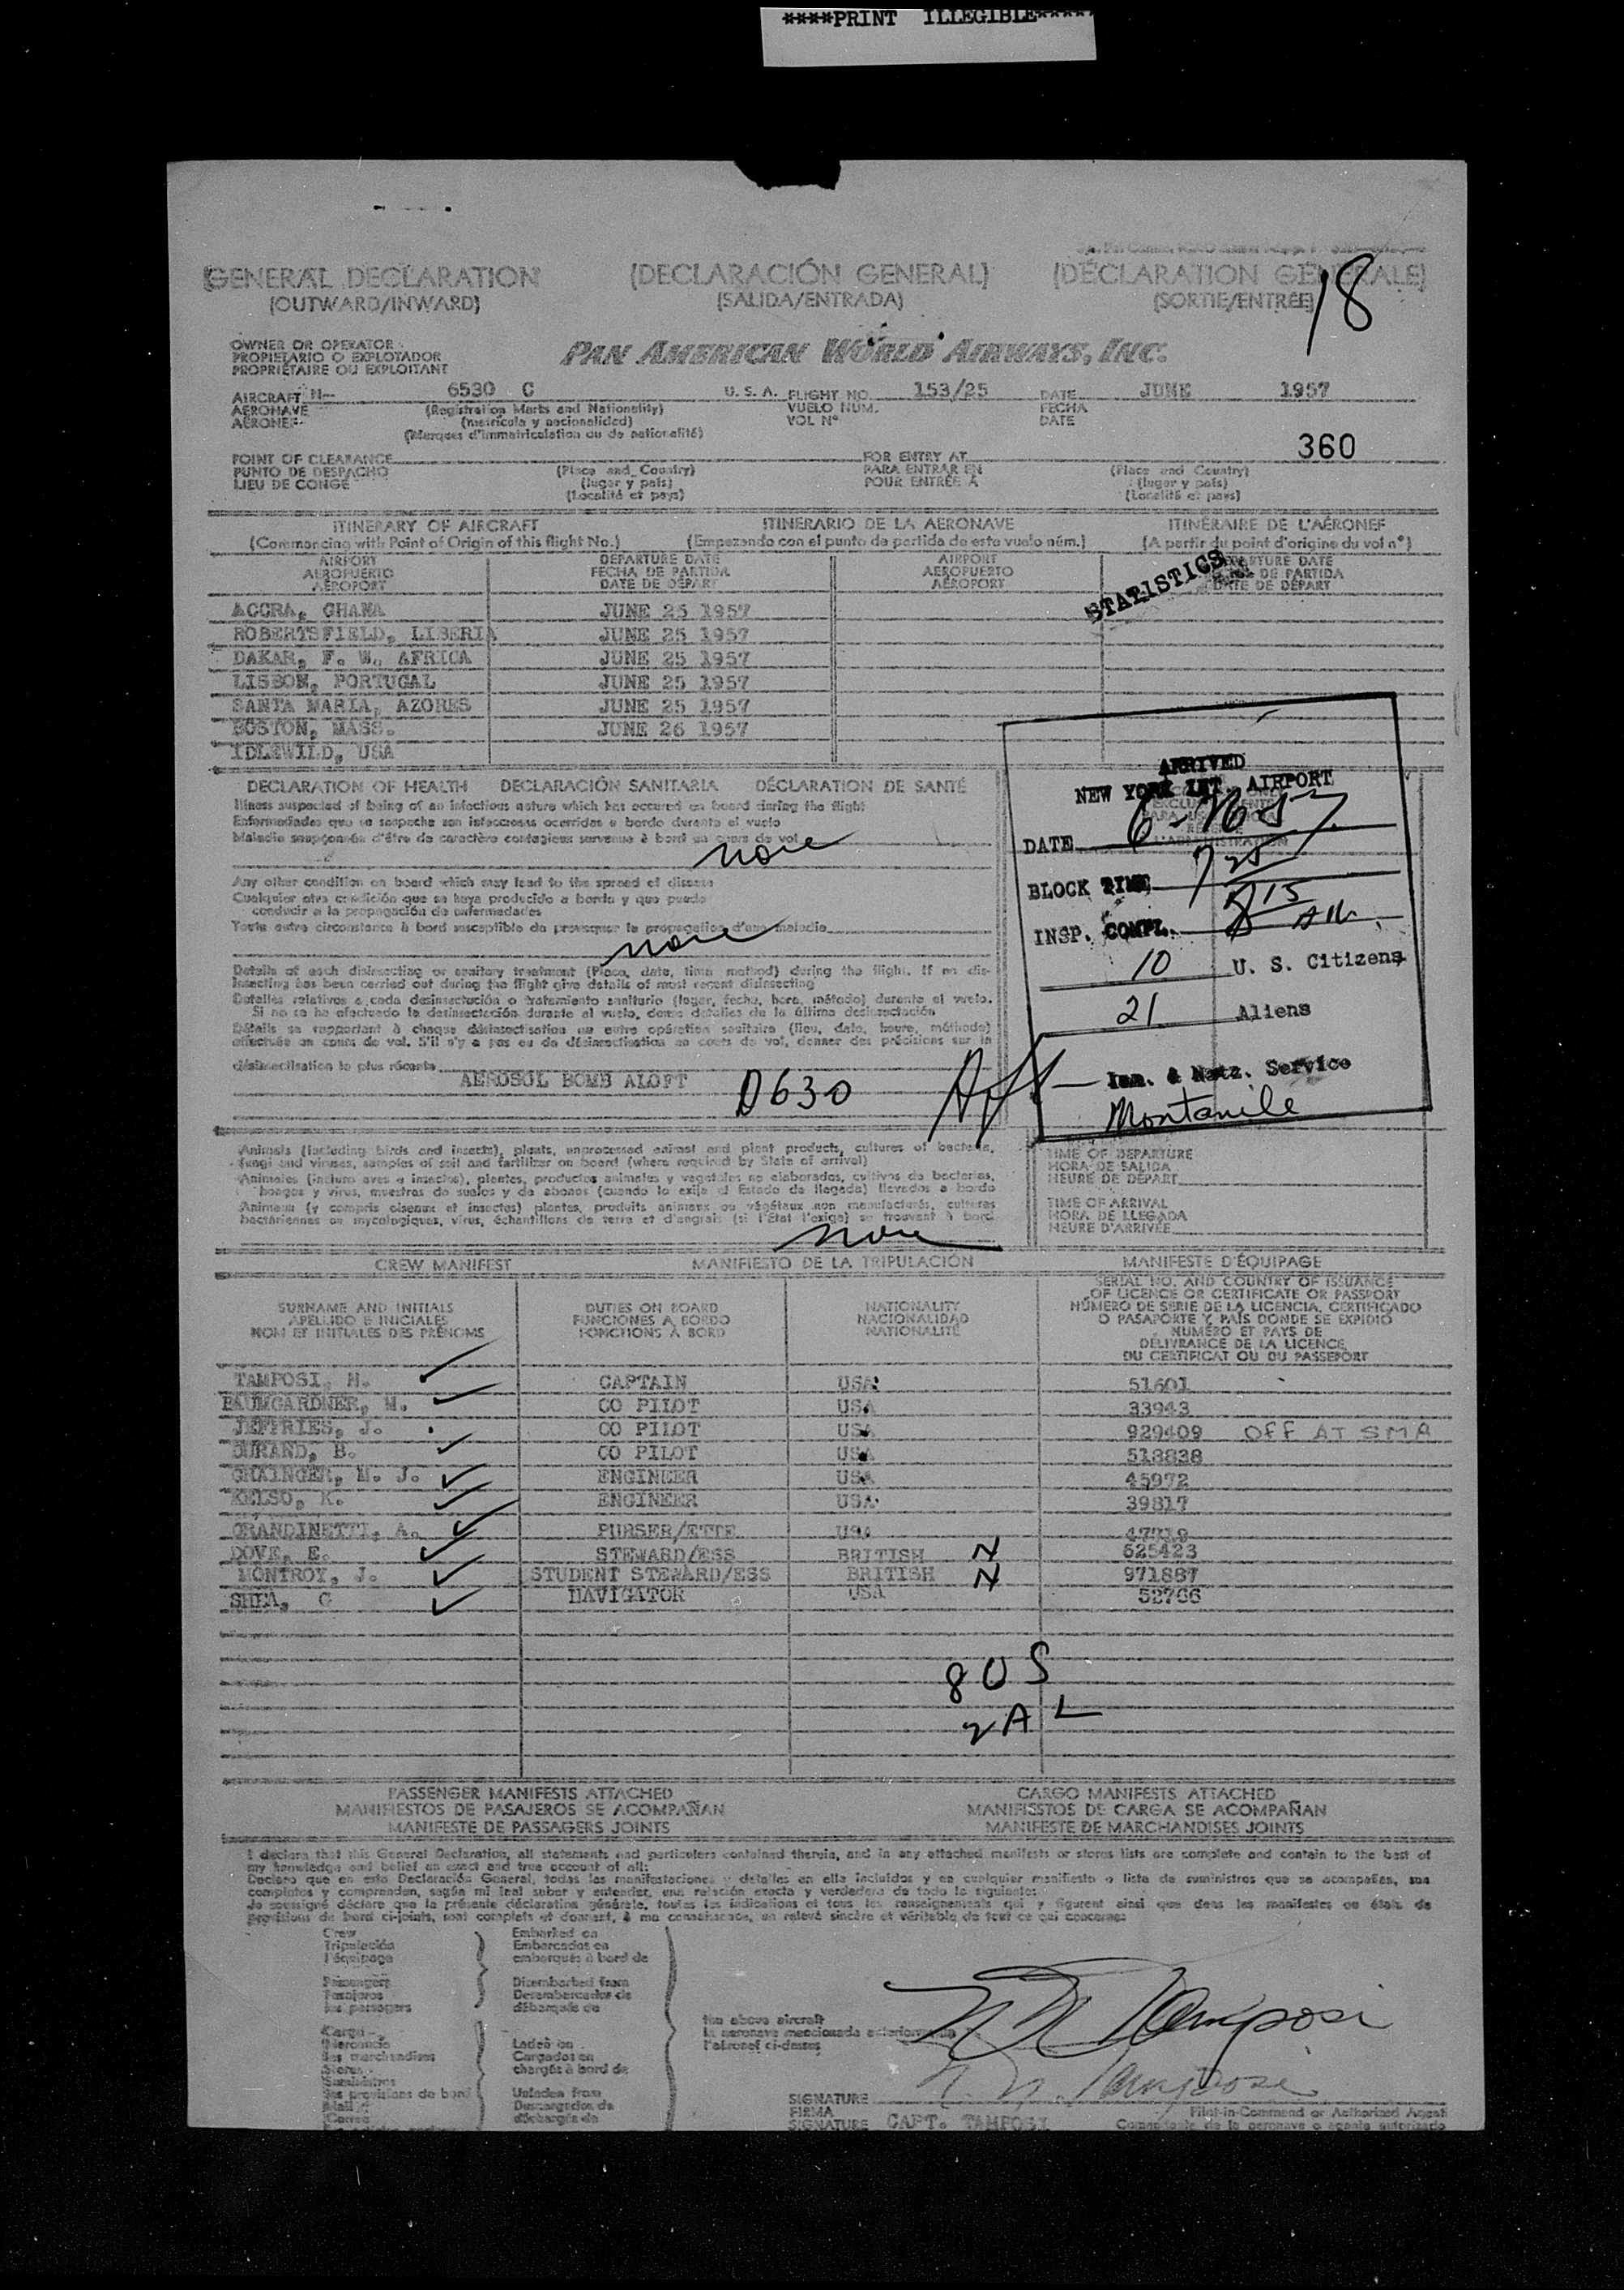 ****PRINT ILLEGIBLE****
18
(GENERAL DECLARATION (DECLARACIÓN GENERAL) (DÉCLARATION GÉNÉRALE)
(OUTWARD/INWARD) (SALIDA/ENTRADA) (SORTIE/ENTRÉE)
OWNER OR OPERATOR
PROPIETARIO O EXPLOTADOR
PROPRIÉTAIRE OU EXPLOITANT
PAN AMERICAN WORLD AIRWAYS, INC.
AIRCRAFT N- 6530 C U. S. A. FLIGHT NO. 153/25 DATE JUNE 1957
AERONAVE (Registration Marks and Nationality) VUELO NUM. FECHA
AÉRONEF (matrícula y nacionalidad) VOL Nº DATE
(Marques d'immatriculation ou de nationalité)
360
POINT OF CLEARANCE FOR ENTRY AT
PUNTO DE DESPACHO (Place and Country) PARA ENTRAR EN (Place and Country)
LIEU DE CONGÉ (lugar y país) POUR ENTRÉE À (lugar y país)
(Localité et pays) (Localité et pays)
ITINERARY OF AIRCRAFT ITINERARIO DE LA AERONAVE ITINÉRAIRE DE L'AÉRONEF
(Commencing with Point of Origin of this flight No.) (Empezando con el punto de partida de este vuelo núm.) (A partir du point d'origine du vol nº)
AIRPORT DEPARTURE DATE AIRPORT DEPARTURE DATE
AEROPUERTO FECHA DE PARTIDA AEROPUERTO DE PARTIDA
AÉROPORT DATE DE DÉPART AÉROPORT DATE DE DÉPART
STATISTICS
ACCRA, GHANA JUNE 25 1957
ROBERTSFIELD, LIBERIA JUNE 25 1957
DAKAR, F. W. AFRICA JUNE 25 1957
LISBON, PORTUGAL JUNE 25 1957
SANTA MARIA, AZORES JUNE 25 1957
BOSTON, MASS. JUNE 26 1957
IDLEWILD, USA
ARRIVED
NEW YORK INT. AIRPORT
DATE
BLOCK TIME 725
INSP. COMPL. 815 AM
10 U. S. Citizens
21 Aliens
Imm. & Natz. Service
Montanile
DECLARATION OF HEALTH DECLARACIÓN SANITARIA DÉCLARATION DE SANTÉ
Illness suspected of being of an infectious nature which has occured on board during the flight
Enfermedades que se sospecha son infecciosas ocurridas a bordo durante el vuelo
Maladie soupçonnée d'être de caractère contagieux survenue à bord au cours de vol
none
Any other condition on board which may lead to the spread of disease
Cualquier otra condición que se haya producido a bordo y que pueda
conducir a la propagación de enfermedades
Toute autre circonstance à bord susceptible de provoquer la propagation d'une maladie
none
Details of each disinsecting or sanitary treatment (Place, date, time method) during the flight. If no dis-
insecting has been carried out during the flight give details of most recent disinsecting
Detalles relativos a cada desinsectación o tratamiento sanitario (lugar, fecha, hora, método) durante el vuelo.
Si no se ha efectuado la desinsectación durante el vuelo, dense detalles de la última desinsectación
Détails se rapportant à chaque désinsectisation ou autre opération sanitaire (lieu, date, heure, méthode)
effectuée en cours de vol. S'il n'y a pas eu de désinsectisation en cours de vol, donner des précisions sur la
désinsectisation la plus récente
AEROSOL BOMB ALOFT 0630
Animals (including birds and insects), plants, unprocessed animal and plant products, cultures of bacteria,
fungi and viruses, samples of soil and fertilizer on board (where required by State of arrival)
Animales (incluso aves e insectos), plantes, productos animales y vegetales no elaborados, cultivos de bacterias,
hongos y virus, muestras de suelos y de abonos (cuando lo exija el Estado de llegada) llevados a bordo
Animaux (y compris oiseaux et insectes) plantes, produits animaux ou végétaux non manufacturés, cultures
bactériennes ou mycologiques, virus, échantillons de terre et d'engrais (si l'État l'exige) se trouvant à bord
none
TIME OF DEPARTURE
HORA DE SALIDA
HEURE DE DÉPART
TIME OF ARRIVAL
HORA DE LLEGADA
HEURE D'ARRIVÉE
CREW MANIFEST MANIFIESTO DE LA TRIPULACIÓN MANIFESTE D'ÉQUIPAGE
SURNAME AND INITIALS DUTIES ON BOARD NATIONALITY SERIAL NO. AND COUNTRY OF ISSUANCE
APELLIDO E INICIALES FUNCIONES A BORDO NACIONALIDAD OF LICENCE OR CERTIFICATE OR PASSPORT
NOM ET INITIALES DES PRÉNOMS FONCTIONS À BORD NATIONALITÉ NÚMERO DE SERIE DE LA LICENCIA, CERTIFICADO
O PASAPORTE Y PAÍS DONDE SE EXPIDIÓ
NUMÉRO ET PAYS DE
DÉLIVRANCE DE LA LICENCE
DU CERTIFICAT OU DU PASSEPORT
TAMPOSI, N. CAPTAIN USA 51601
BAUMGARDNER, M. CO PILOT USA 33943
JEFFRIES, J. CO PILOT USA 929409 OFF AT SMA
DURAND, B. CO PILOT USA 518838
GRAINGER, M. J. ENGINEER USA 45972
KELSO, K. ENGINEER USA 39817
GRANDINETTI, A. PURSER/ETTE USA
DOVE, E. STEWARD/ESS BRITISH N 525423
MONTROY, J. STUDENT STEWARD/ESS BRITISH N 971887
SHEA, C NAVIGATOR USA 52766
8 US
2 AL
PASSENGER MANIFESTS ATTACHED CARGO MANIFESTS ATTACHED
MANIFIESTOS DE PASAJEROS SE ACOMPAÑAN MANIFIESTOS DE CARGA SE ACOMPAÑAN
MANIFESTE DE PASSAGERS JOINTS MANIFESTE DE MARCHANDISES JOINTS
I declare that this General Declaration, all statements and particulars contained therein, and in any attached manifests or stores lists are complete and contain to the best of
my knowledge and belief an exact and true account of all:
Declaro que en esta Declaración General, todas las manifestaciones y detalles en ella incluidos y en cualquier manifiesto o lista de suministros que se acompañan, son
completos y comprenden, según mi leal saber y entender, una relación exacta y verdadera de todo lo siguiente:
Je soussigné déclare que la présente déclaration générale, toutes les indications et tous les renseignements qui y figurent ainsi que dans les manifestes ou états de
provisions de bord ci-joints, sont complets et donnent, à ma connaissance, un relevé sincère et véritable de tout ce qui concerne:
Crew Embarked on
Tripulación Embarcados en
l'équipage embarqués à bord de
Passengers Disembarked from
Pasajeros Desembarcados de
les passagers débarqués de
Cargo
Mercancía Laden on
les marchandises Cargados en
Stores chargés à bord de
Suministros
les provisions de bord Unladen from
Mail Descargados de
Correo déchargés de
the above aircraft
la aeronave mencionada anteriormente
l'aéronef ci-dessus
N. N. Tamposi
N. N. Tamposi
SIGNATURE Pilot-in-Command or Authorized Agent
FIRMA Comandante de la aeronave o agente autorizado
SIGNATURE CAPT. TAMPOSI